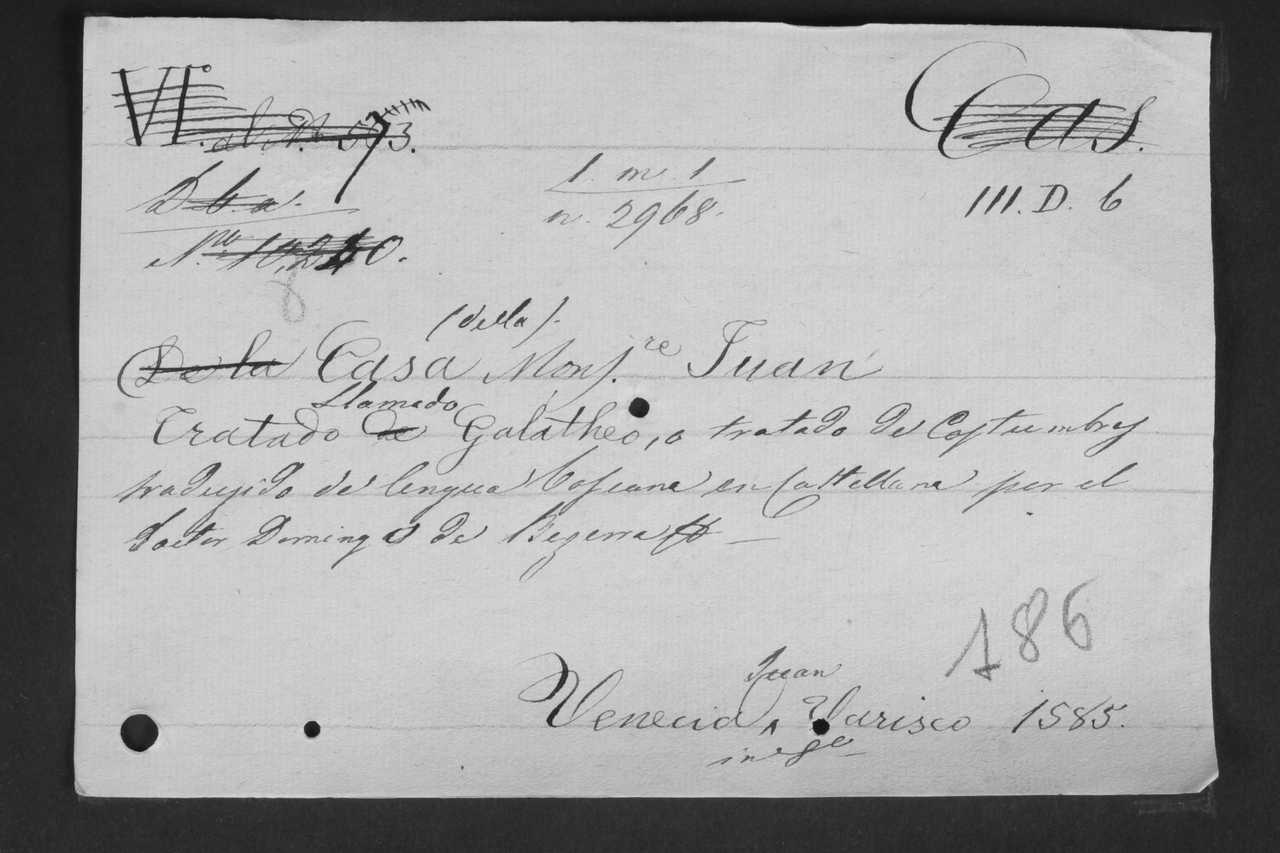 VI.
Cas.
D.b.a.
1. m. 1
n. 2968.
III. D. 6
8
(della).
De la Casa Mons.re Juan
Llamado
Tratado de Galatheo, o tratado de Costumbres
traduzido de lengua toscana en Castellana por el
doctor Domingo de Bezerra
186
Juan
Venecia ^ Varisco 1585.
in 8o